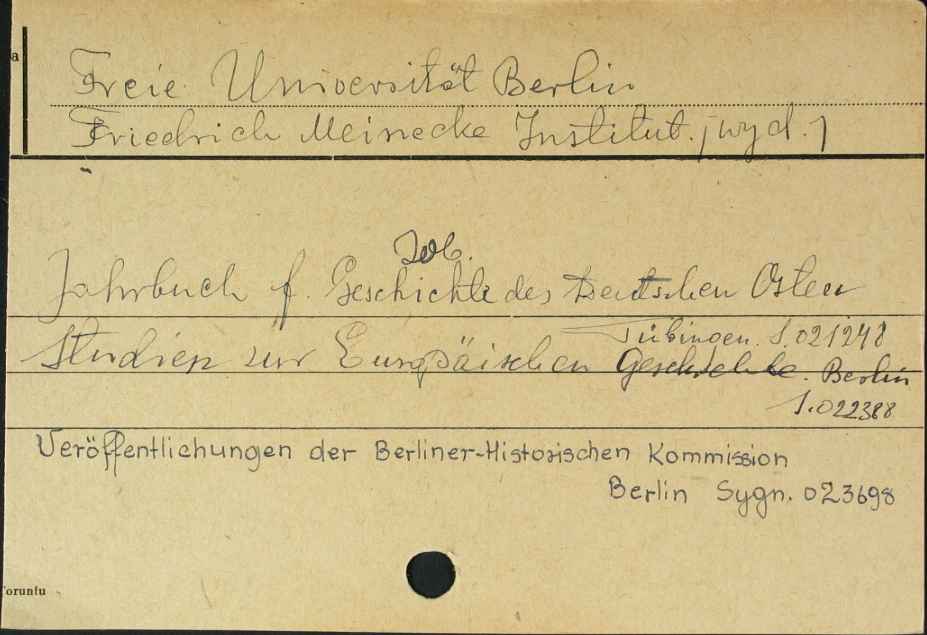 a
Freie Universität Berlin
Friedrich Meinecke Institut. [wyd.]
Zob.
Jahrbuch f. Geschichte des Deutschen Osten
Tübingen. S. 021248
Studien zur Europäischen Geschichte. Berlin
S. 022388
Veröffentlichungen der Berliner-Historischen Kommission
Berlin Sygn. 023698
Toruniu